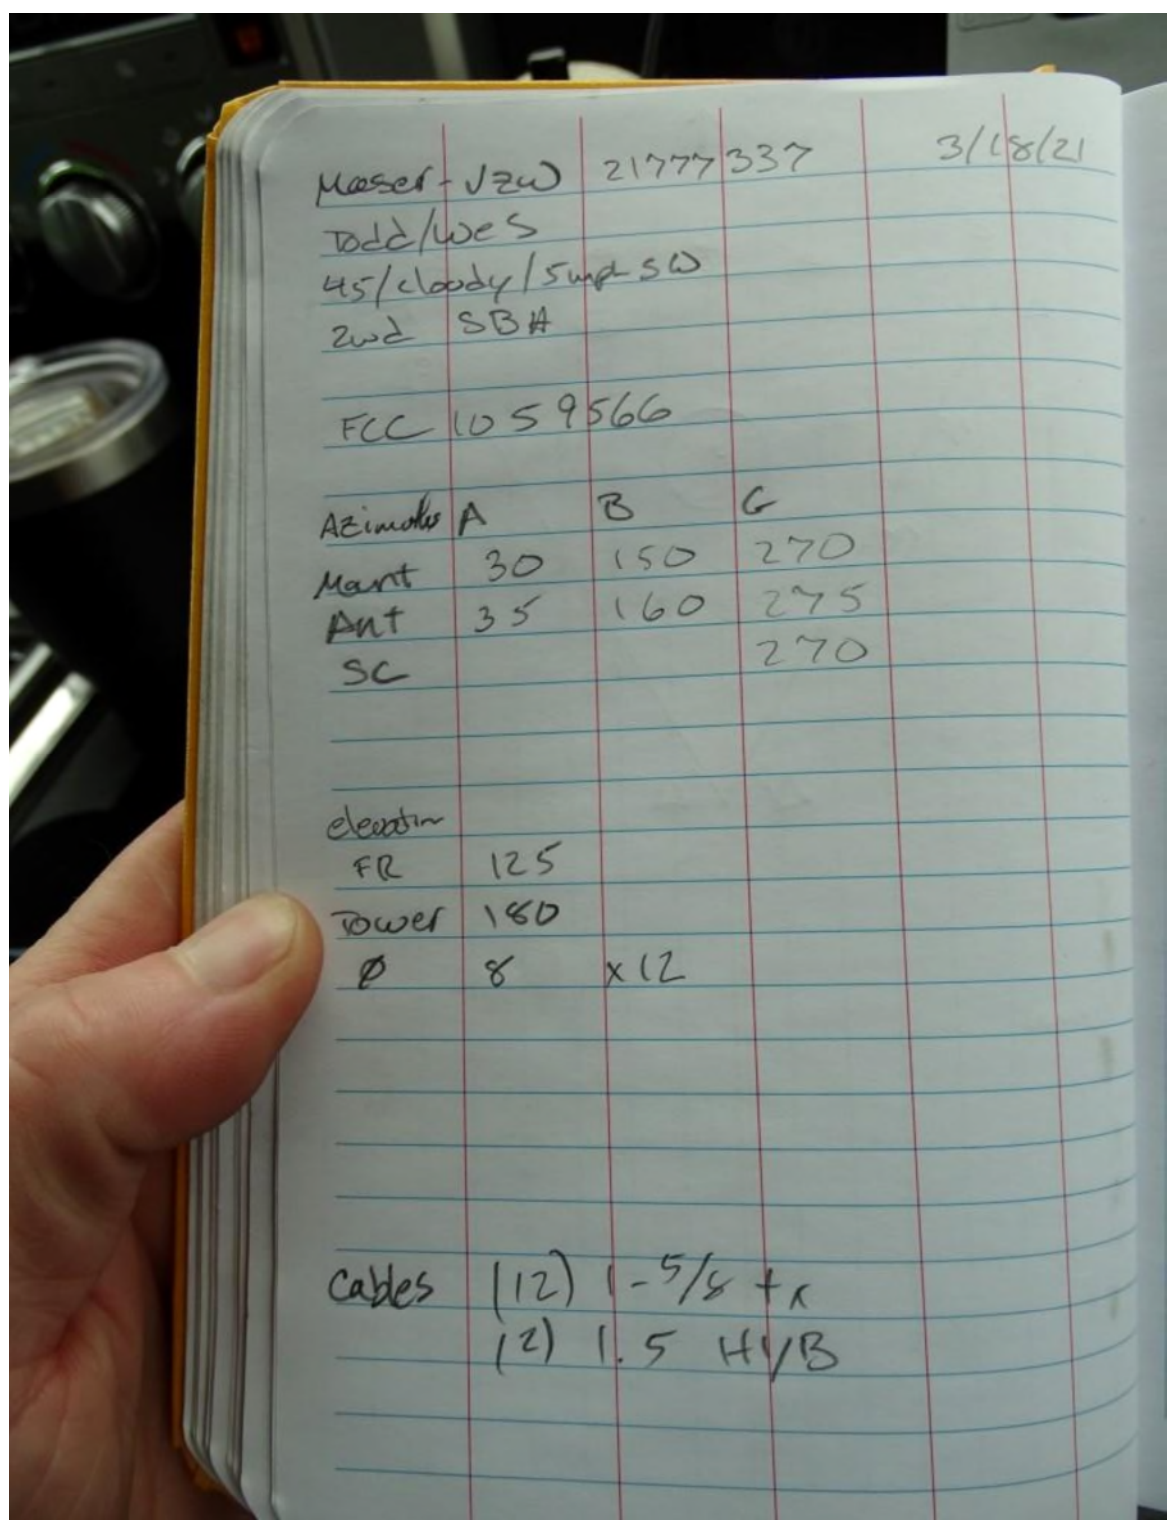 Maser - VZW 21777337 3/18/21
Todd/Wes
45/cloudy/5mph SW
2wd SBA
FCC 1059566
Azimuths A B G
Mant 30 150 270
Ant 35 160 275
SC 270
elevation
FR 125
Tower 180
Ø 8 x12
Cables (12) 1-5/8 tx
(2) 1.5 HYB